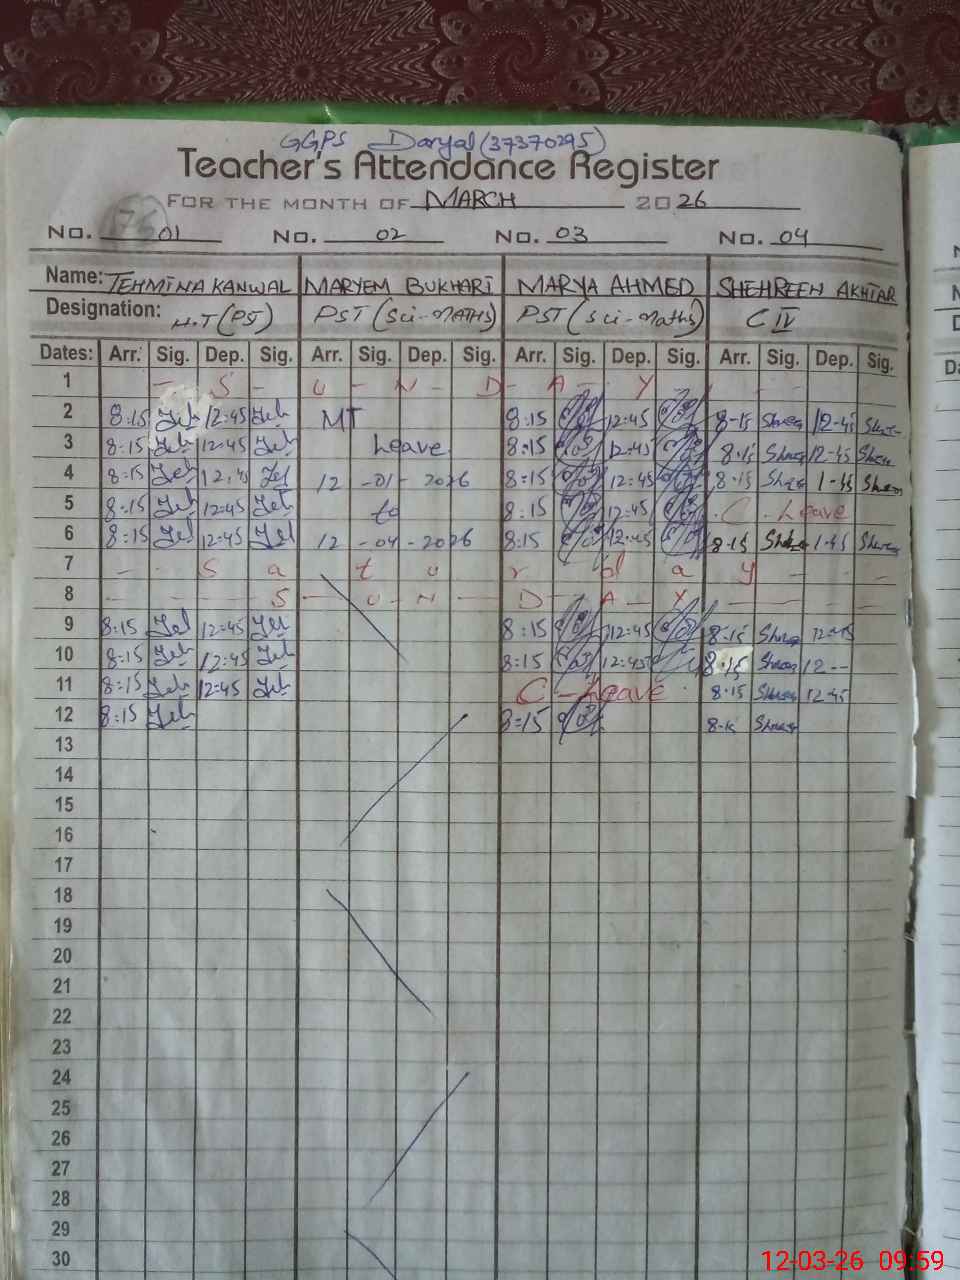 GGPS Daryal (37370295)
Teacher's Attendance Register
FOR THE MONTH OF MARCH 2026
No. 01 No. 02 No. 03 No. 04
Name: TEHMINA KANWAL MARYEM BUKHARI MARYA AHMED SHEHREEN AKHTAR
Designation: H.T (PST) PST (Sci-MATHS) PST (Sci-Maths) C IV
Dates: Arr. Sig. Dep. Sig. Arr. Sig. Dep. Sig. Arr. Sig. Dep. Sig. Arr. Sig. Dep. Sig.
1 - S - U - N - D - A - Y
2 8:15 12:45 MT 8:15 12:45 8-15 12-45
3 8:15 12:45 Leave 8:15 12:45 8-15 12-45
4 8:15 12:45 12 -01- 2026 8:15 12:45 8-15 1-45
5 8:15 12:45 to 8:15 12:45 C - Leave
6 8:15 12:45 12 -04-2026 8:15 12:45 8-15 1-45
7 - - S a t u r d a y - - -
8 - - - S - U - N - D - A - Y - - - -
9 8:15 12:45 8:15 12:45 8-15 12-45
10 8:15 12:45 8:15 12:45 8-15 12--
11 8:15 12:45 C - Leave 8-15 12-45
12 8:15 8:15
13
14
15
16
17
18
19
20
21
22
23
24
25
26
27
28
29
30
12-03-26 09:59